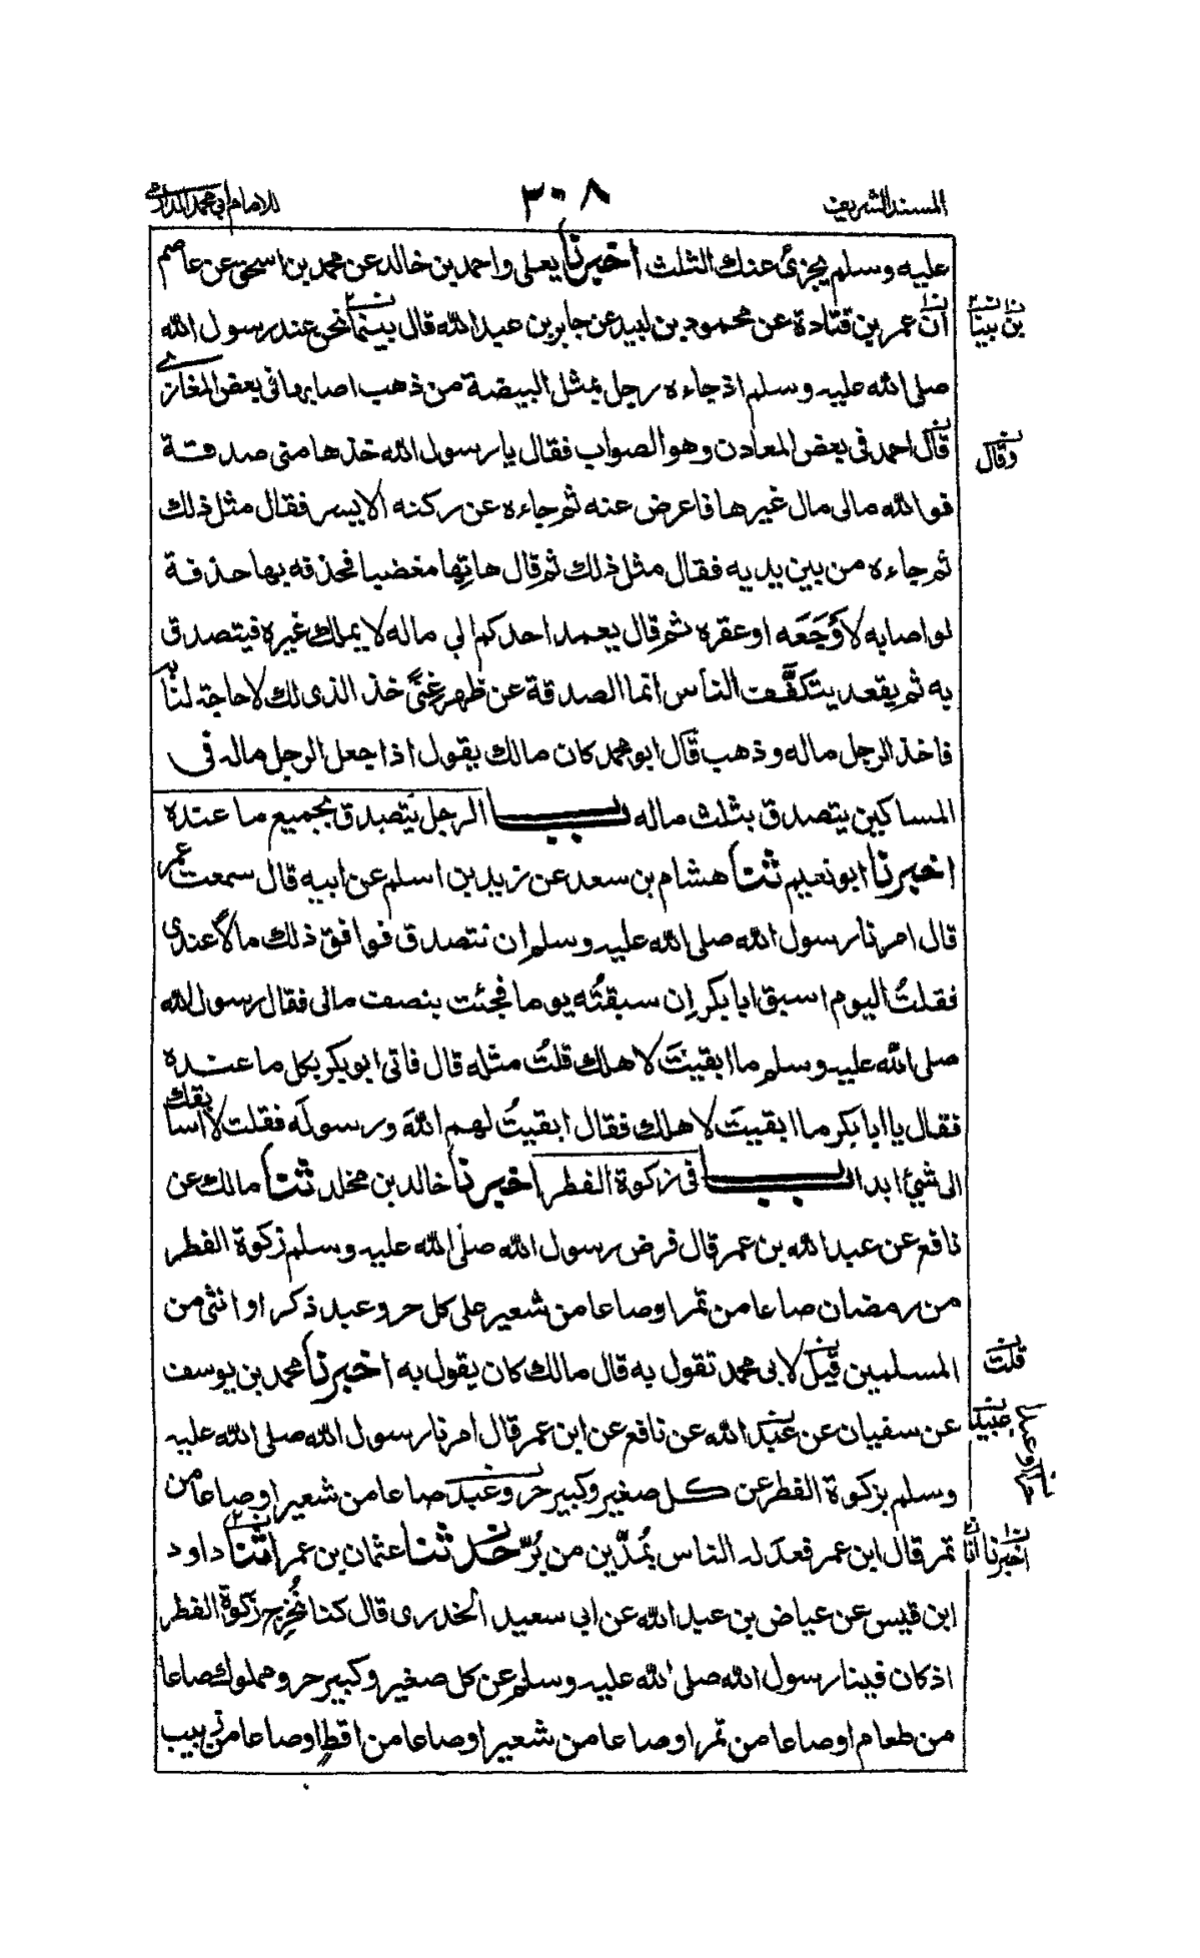 المسند الشريف ٣٠٨ للامام ابي محمد الدارمي
عليه وسلم يجزئ عنك الثلث اخبرنا يعلى واحمد بن خالد عن محمد بن اسحق عن عاصم
ان عمر بن قتادة عن محمود بن لبيد عن جابر بن عبد الله قال بينما نحن عند رسول الله
بن بينا
صلى الله عليه وسلم اذ جاءه رجل بمثل البيضة من ذهب اصابها فى بعض المغازى
قال احمد فى بعض المعادن وهو الصواب فقال يا رسول الله خذها منى صدقة
وقال
فوالله مالى مال غيرها فاعرض عنه ثم جاءه عن ركنه الايسر فقال مثل ذلك
ثم جاءه من بين يديه فقال مثل ذلك ثم قال هاتها مغضبا فحذفه بها حذفة
لو اصابه لاَوْجَعَه او عقره ثم قال يعمد احدكم الى ماله لا يملك غيره فيتصدق
به ثم يقعد يتكفَّف الناس انما الصدقة عن ظهر غِنًى خذ الذى لك لا حاجة لنا به
فاخذ الرجل ماله وذهب قال ابو محمد كان مالك يقول اذا جعل الرجل ماله فى
المساكين يتصدق بثلث ماله باب الرجل يتصدق بجميع ما عنده
اخبرنا ابو نعيم ثنا هشام بن سعد عن زيد بن اسلم عن ابيه قال سمعت عمر
قال امرنا رسول الله صلى الله عليه وسلم ان نتصدق فوافق ذلك مالاً عندى
فقلتُ اليوم اسبق ابا بكر اِن سبقتُه يوما فجئت بنصف مالى فقال رسول الله
صلى الله عليه وسلم ما ابقيتَ لاهلك قلتُ مثله قال فاتى ابو بكر بكل ما عنده
فقال يا ابا بكر ما ابقيتَ لاهلك فقال ابقيتُ لهم اللهَ ورسولَه فقلت لا اسابقك
الى شئ ابدا باب فى زكوة الفطر اخبرنا خالد بن مخلد ثنا مالك عن
نافع عن عبد الله بن عمر قال فرض رسول الله صلى الله عليه وسلم زكوة الفطر
من رمضان صاعا من تمر اوصاعا من شعير على كل حر وعبد ذكر او انثى من
المسلمين قيل لابى محمد تقول به قال مالك كان يقول به اخبرنا محمد بن يوسف
قلت
عن سفيان عن عبد الله عن نافع عن ابن عمر قال امرنا رسول الله صلى الله عليه
عبيد
وسلم بزكوة الفطر عن كل صغير وكبير حر وعبد صاعا من شعير اوصاعا من
تمر قال ابن عمر فعدله الناس بمُدّين من بُرّ حدثنا عثمان بن عمر انا داود
اخبرنا انا
ابن قيس عن عياض بن عبد الله عن ابى سعيد الخدرى قال كنا نُخرِج زكوة الفطر
اذ كان فينا رسول الله صلى الله عليه وسلم عن كل صغير وكبير حر ومملوك صاعا
من طعام اوصاعا من تمر اوصاعا من شعير اوصاعا من اقط اوصاعا من زبيب